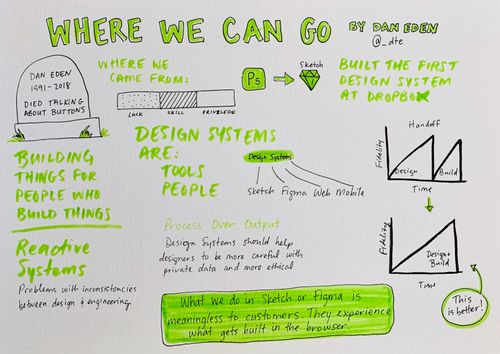 WHERE WE CAN GO
BY DAN EDEN
@_dte
DAN EDEN
1991-2018
DIED TALKING
ABOUT BUTTONS
WHERE WE
CAME FROM:
LUCK SKILL PRIVILEGE
Ps
Sketch
BUILT THE FIRST
DESIGN SYSTEM
AT DROPBOX
BUILDING
THINGS FOR
PEOPLE WHO
BUILD THINGS
Reactive
Systems
Problems with inconsistencies
between design & engineering
DESIGN SYSTEMS
ARE:
TOOLS
PEOPLE
Design Systems
Sketch Figma Web Mobile
Process Over Output
Design Systems should help
designers to be more careful with
private data and more ethical
What we do in Sketch or Figma is
meaningless to customers. They experience
what gets built in the browser.
Handoff
Fidelity
Design
Build
Time
Fidelity
Design+
Build
Time
This is
better!